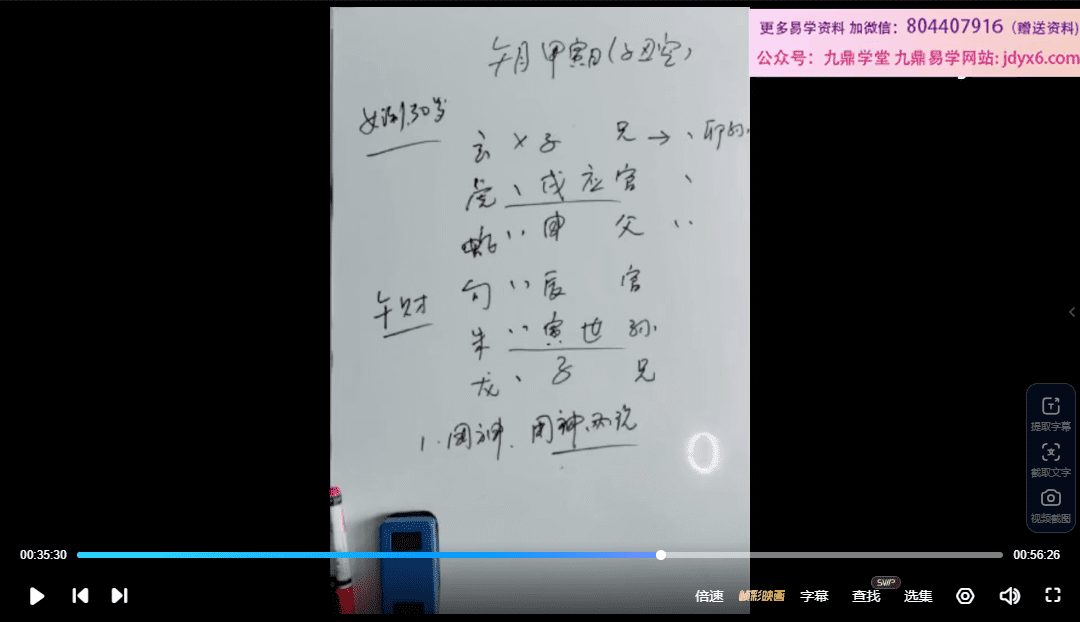 更多易学资料 加微信：804407916（赠送资料）
公众号：九鼎学堂 九鼎易学网站: jdyx6.com
午月 甲寅日(子丑空)
女测 30岁
玄 × 子 兄 → 、 卯孙
虎 、 戌 应 官 、
蛇 、、 申 父 、、
勾 、、 辰 官
午财
朱 、、 寅 世 孙
龙 、 子 兄
1. 用神、用神两说
提取字幕
截取文字
视频截图
00:35:30
00:56:26
倍速
字幕
SWP
查找
选集